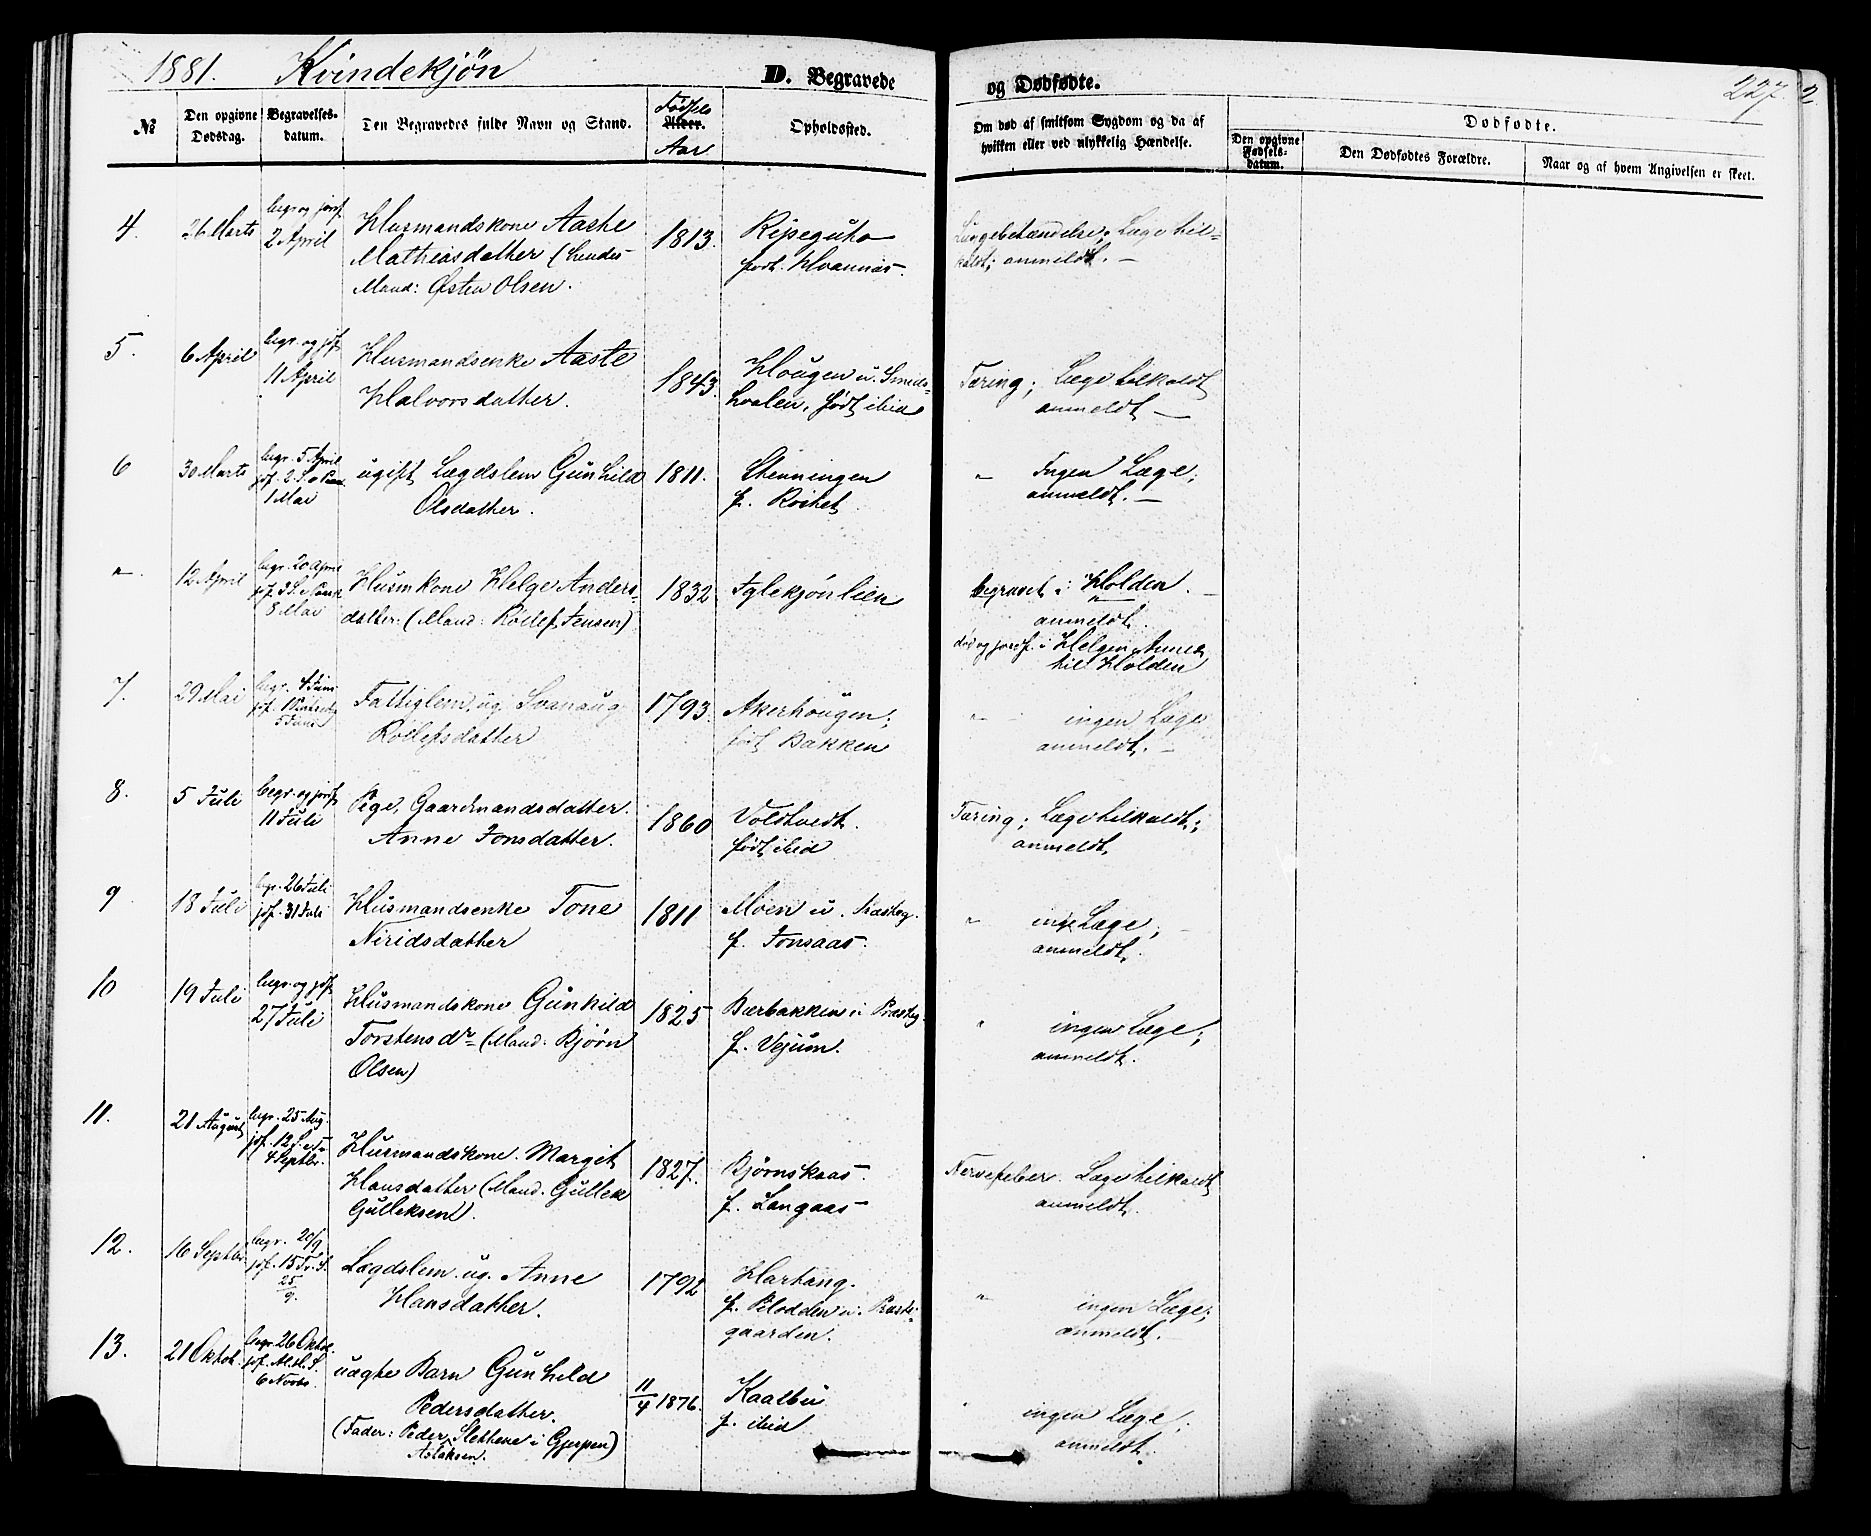 1881. Kvindekjøn
D. Begravede og Dødfødte.
227.
2
№
Den opgivne Dødsdag.
Begravelses-datum.
Den Begravedes fulde Navn og Stand.
Fødsels
Alder.
Aar
Opholdssted.
Om død af smitsom Sygdom og da af
hvilken eller ved ulykkelig Hændelse.
Dødfødte.
Den opgivne Fødsels-datum.
Den Dødfødtes Forældre.
Naar og af hvem Angivelsen er skeet.
4.
26 Marts
begr og jordf
2 April
Husmandskone Aaste
Mathiasdatter (hendes
Mand: Østen Olsen.
1813.
Ripeguta
født. Hvannas.
Lungebetændelse; Læge til-
kaldt; anmeldt. —
5.
6 April
begr. og jdf
11 April
Husmandsenke Aaste
Halvorsdatter.
1843.
Hougen u. Smeds-
hvalen, født ibid
Tæring; Læge tilkaldt
anmeldt —
6
30 Marts
begr. 5 April
jdf. 2 S. e. Paas
1 Mai
ugift Lægdslem Gunhild
Olsdatter.
1811.
Stenningen
f. Roshet
" Ingen Læge;
anmeldt. —
"
12 April
begr. 20 April
jdf. 3 S. e. Paask
8 Mai
Husmkone Helge Anders-
datter. (Mand: Rollef Jensen)
1832
Iglekjønlien
begravet i Holden. —
anmeldt.
død og jordf. i Helgen Annex
til Holden
7.
29 Mai
begr. 4 Juni
jdf. 1 Pintsedag
5 Juni
Fattiglem, ug. Svanaug
Rollefsdatter
1793.
Akerhougen;
født Bakken
" ingen Læge
anmeldt. —
8.
5 Juli
begr. og jordf
11 Juli
Pige, Gaardmandsdatter.
Anne Jonsdatter.
1860
Voldtvedt.
født ibid
Tæring; Læge tilkaldt;
anmeldt.
9
18 Juli
begr. 26 Juli
jdf. 31 Juli
Husmandsenke Tone
Niridsdatter
1811
Moen u. Præsteg.
f. Jonsaas.
" inge Læge;
anmeldt.
10
19 Juli
begr og jdf
27 Juli
Husmandskone Gunhild
Torstensdr (Mand: Bjørn
Olsen)
1825
Bærbakken u Præsteg.
f. Vejum.
" ingen Læge;
anmeldt.
11.
21 August
begr. 25 Aug.
jdf. 12 S. e. Tr
4 Septbr.
Husmandskone. Margit
Hansdatter (Mand. Gullek
Gulleksen).
1827.
Bjørnskaas.
f. Langaas
Nervefeber. Læge tilkaldt
anmeldt.
12.
16 Septbr.
begr. 20/9
jdf. 15 Tr. S.
25/9.
Lægdslem ug. Anne
Hansdatter.
1792
Hartang.
f. Plodden u. Præste-
gaarden.
" ingen Læge;
anmeldt.
13.
21 Oktob.
begr. 26 Oktob.
jdf. Al. H. S.
6 Novbr.
uægte Barn Gunhild
Pedersdatter.
(Fader: Peder Slettene i Gjerpen)
Aslaksen.
11/4 1876.
Kaalbu
f. ibid
" ingen Læge;
anmeldt.